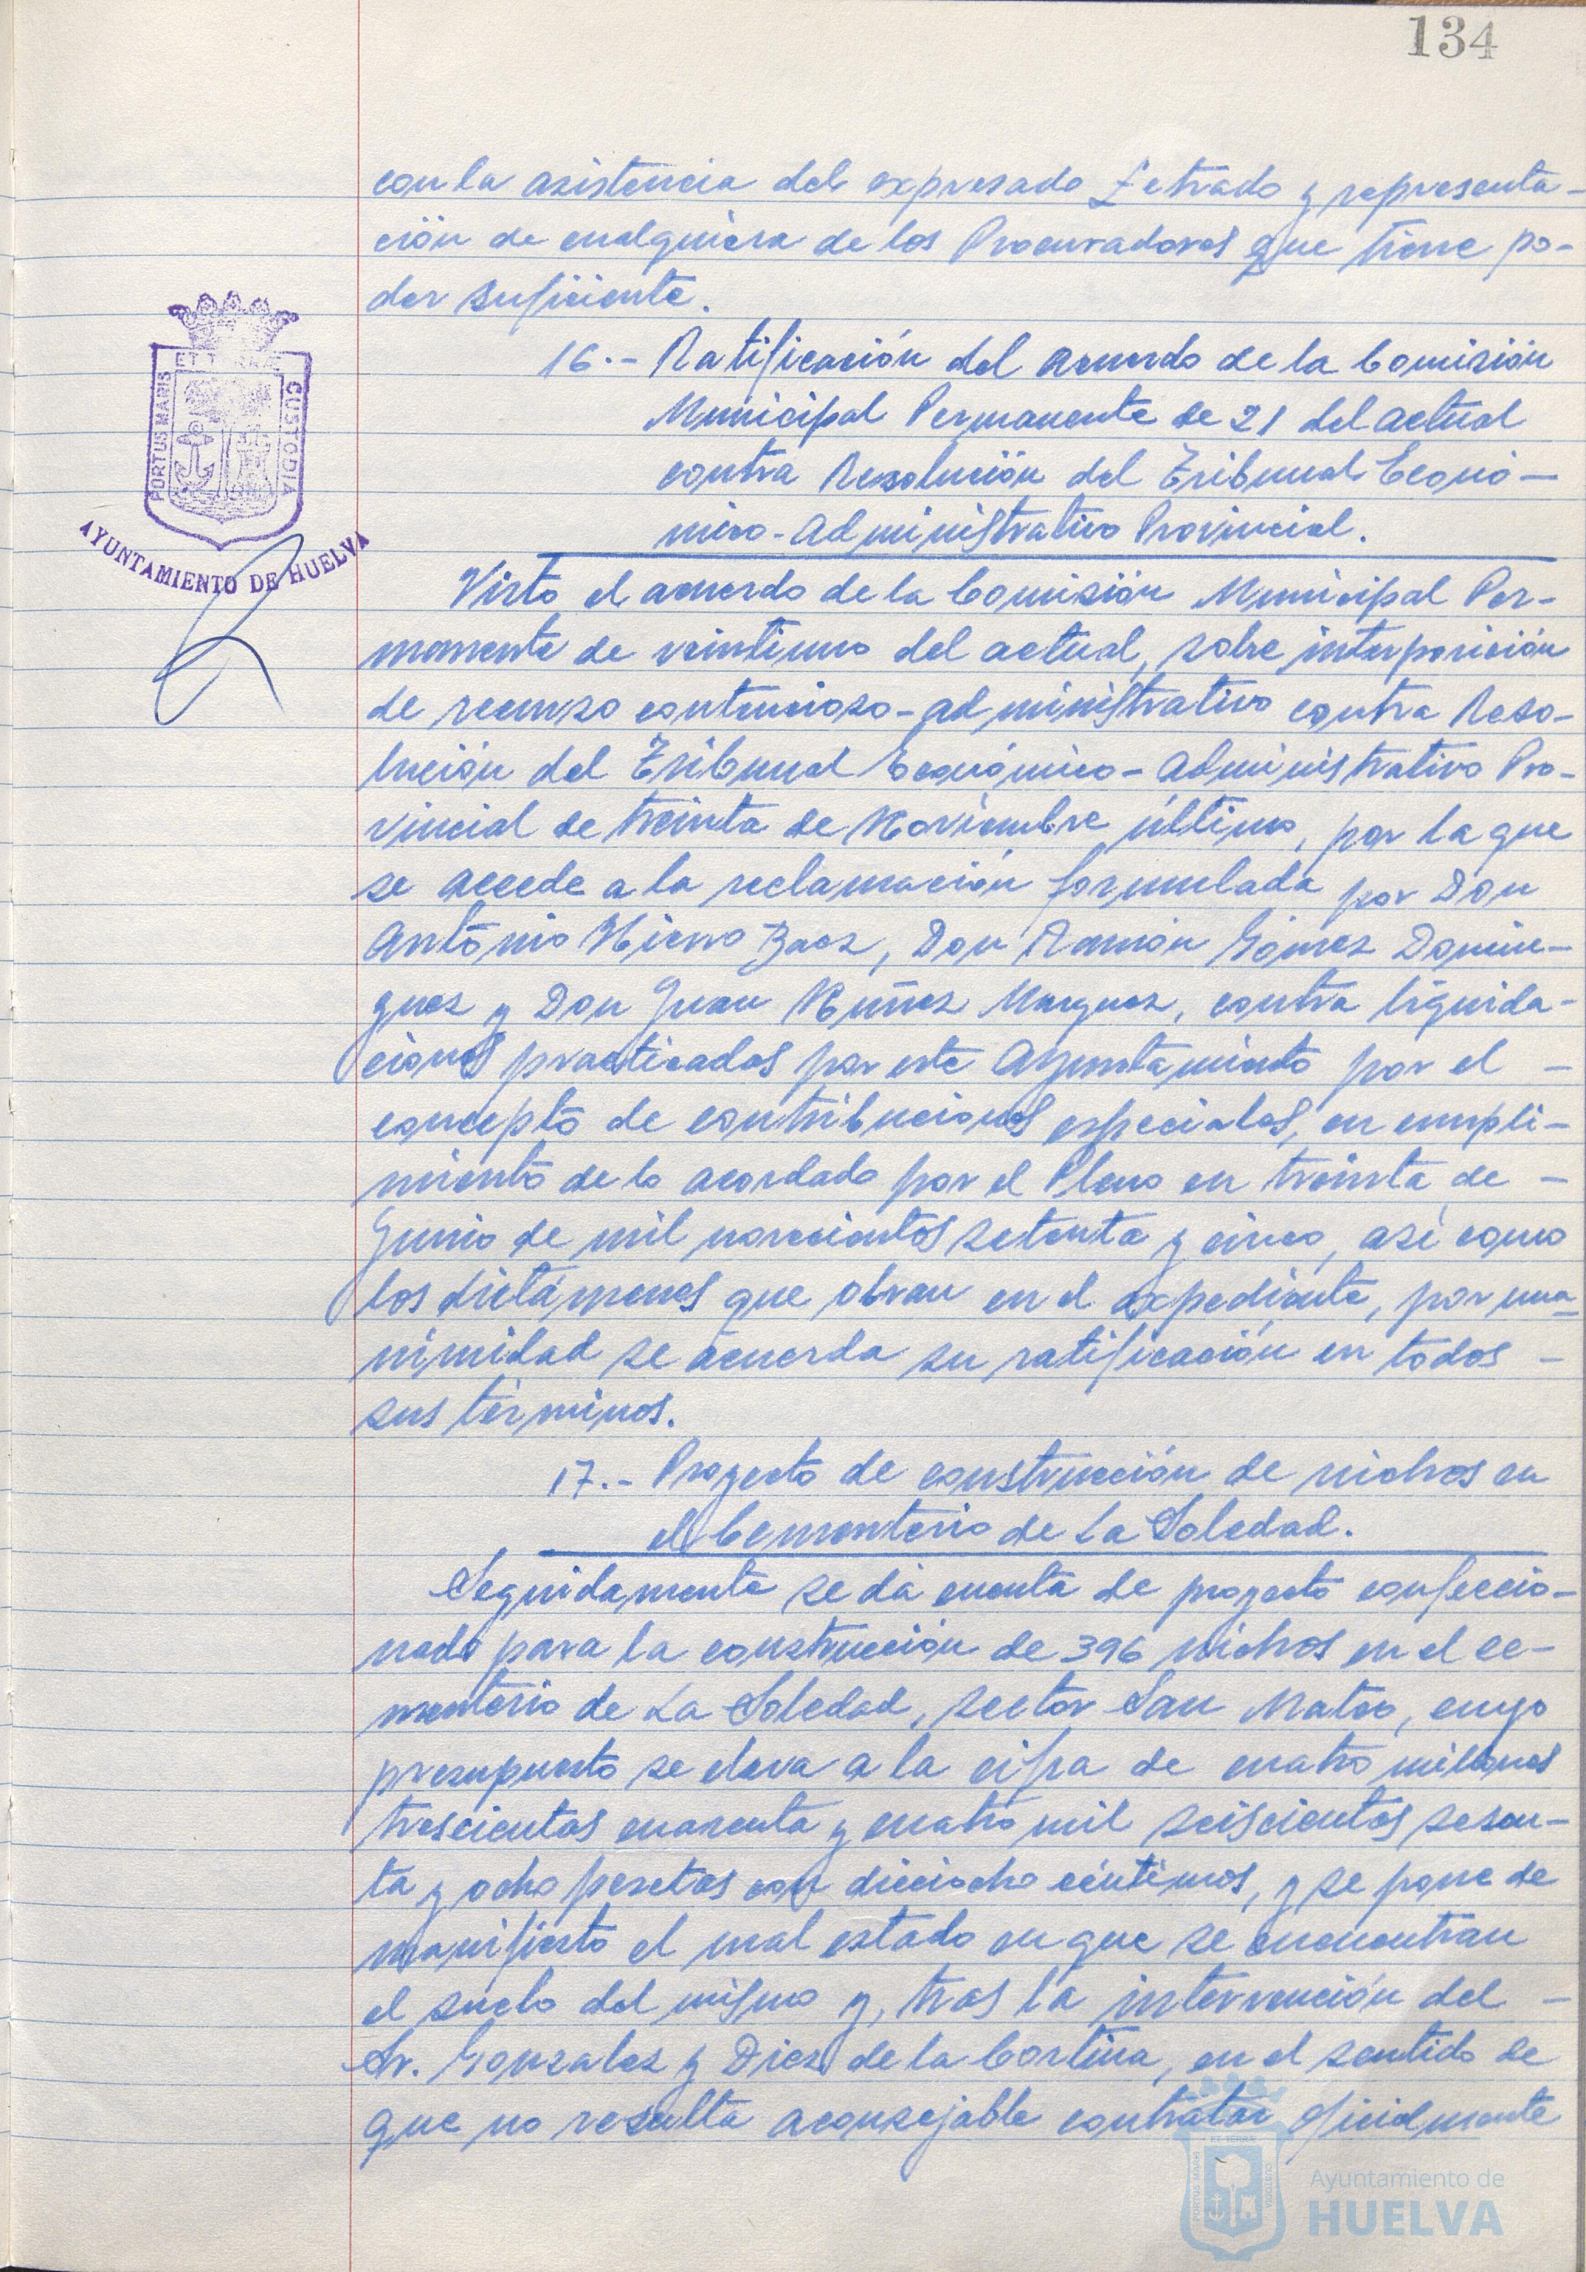 134
con la asistencia del expresado Letrado y representa-
ción de cualquiera de los Procuradores que tiene po-
der suficiente.
16.- Ratificación del acuerdo de la Comisión
Municipal Permanente de 21 del actual
contra Resolución del Tribunal Econó-
mico-Administrativo Provincial.
Visto el acuerdo de la Comisión Municipal Per-
manente de veintiuno del actual, sobre interposición
de recurso contencioso-administrativo contra Reso-
lución del Tribunal Económico-Administrativo Pro-
vincial de treinta de Noviembre último, por la que
se accede a la reclamación formulada por Don
Antonio Hierro Baez, Don Ramón Gómez Domin-
guez y Don Juan Nuñez Marquez, contra liquida-
ciones practicadas por este Ayuntamiento por el -
concepto de contribuciones especiales, en cumpli-
miento de lo acordado por el Pleno en treinta de -
Junio de mil novecientos setenta y cinco, así como
los dictámenes que obran en el expediente, por una-
nimidad se acuerda su ratificación en todos -
sus términos.
17.- Proyecto de construcción de nichos en
el Cementerio de La Soledad.
Seguidamente se dá cuenta de proyecto confeccio-
nado para la construcción de 396 nichos en el ce-
menterio de La Soledad, sector San Mateo, cuyo
presupuesto se eleva a la cifra de cuatro millones
trescientas cuarenta y cuatro mil seiscientas sesen-
ta y ocho pesetas con dieciocho céntimos, y se pone de
manifiesto el mal estado en que se encuentran
el suelo del mismo y, tras la intervención del -
Sr. Gonzalez y Diez de la Cortina, en el sentido de
que no resulta aconsejable contratar oficialmente
PORTUS MARIS
ET TERRAE
CUSTODIA
AYUNTAMIENTO DE HUELVA
Ayuntamiento de
HUELVA